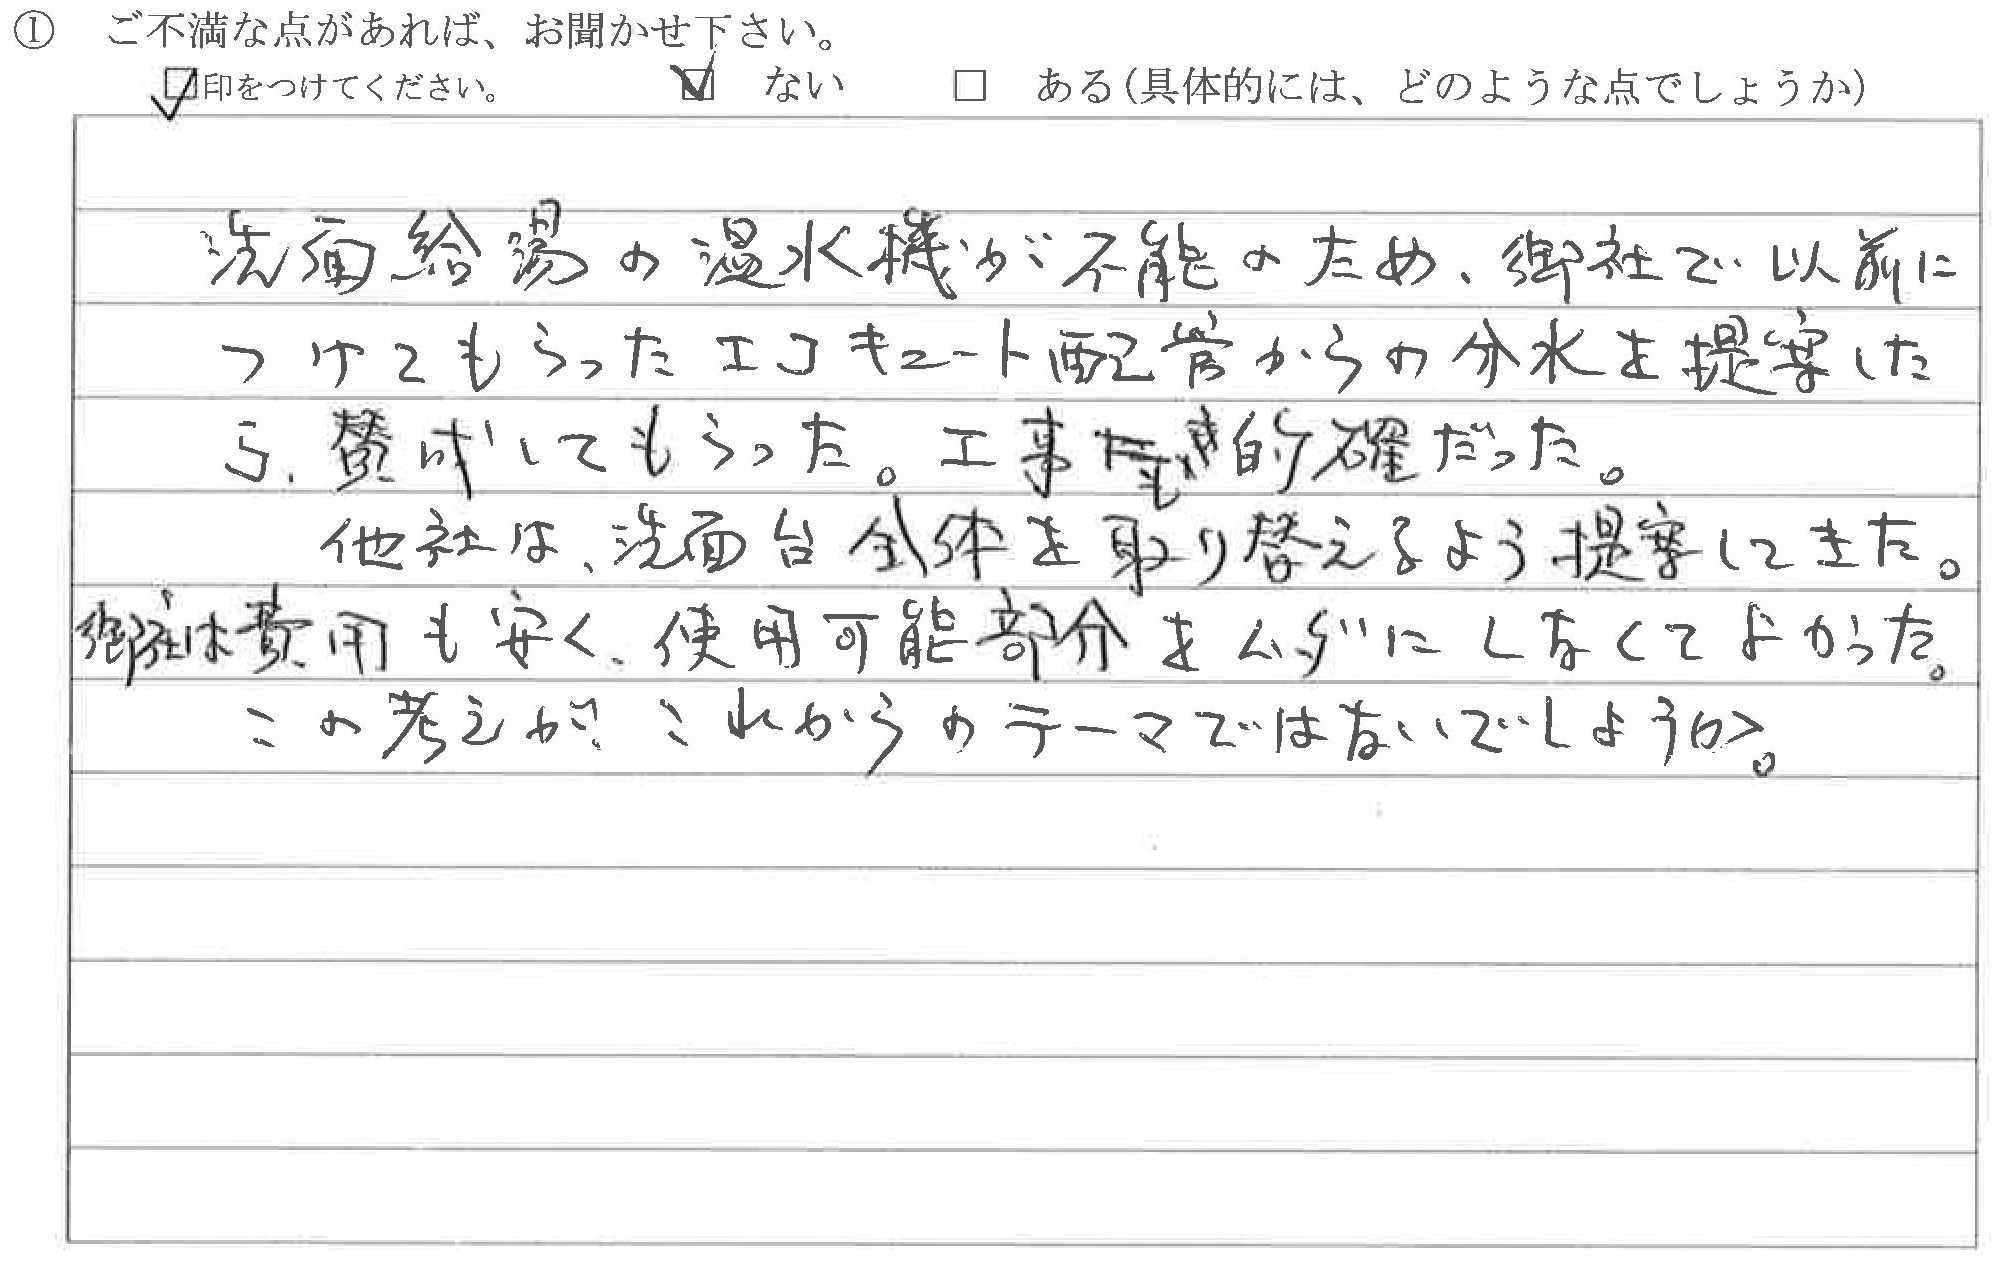 ① ご不満な点があれば、お聞かせ下さい。
☑印をつけてください。 ☑ ない □ ある(具体的には、どのような点でしょうか)
洗面給湯の温水機が不能のため、御社で以前に
つけてもらったエコキュート配管からの分水を提案した
ら、賛成してもらった。工事も的確だった。
他社は、洗面台全体を取り替えるよう提案してきた。
御社は費用も安く、使用可能部分をムダにしなくてよかった。
この考えが、これからのテーマではないでしょうか。